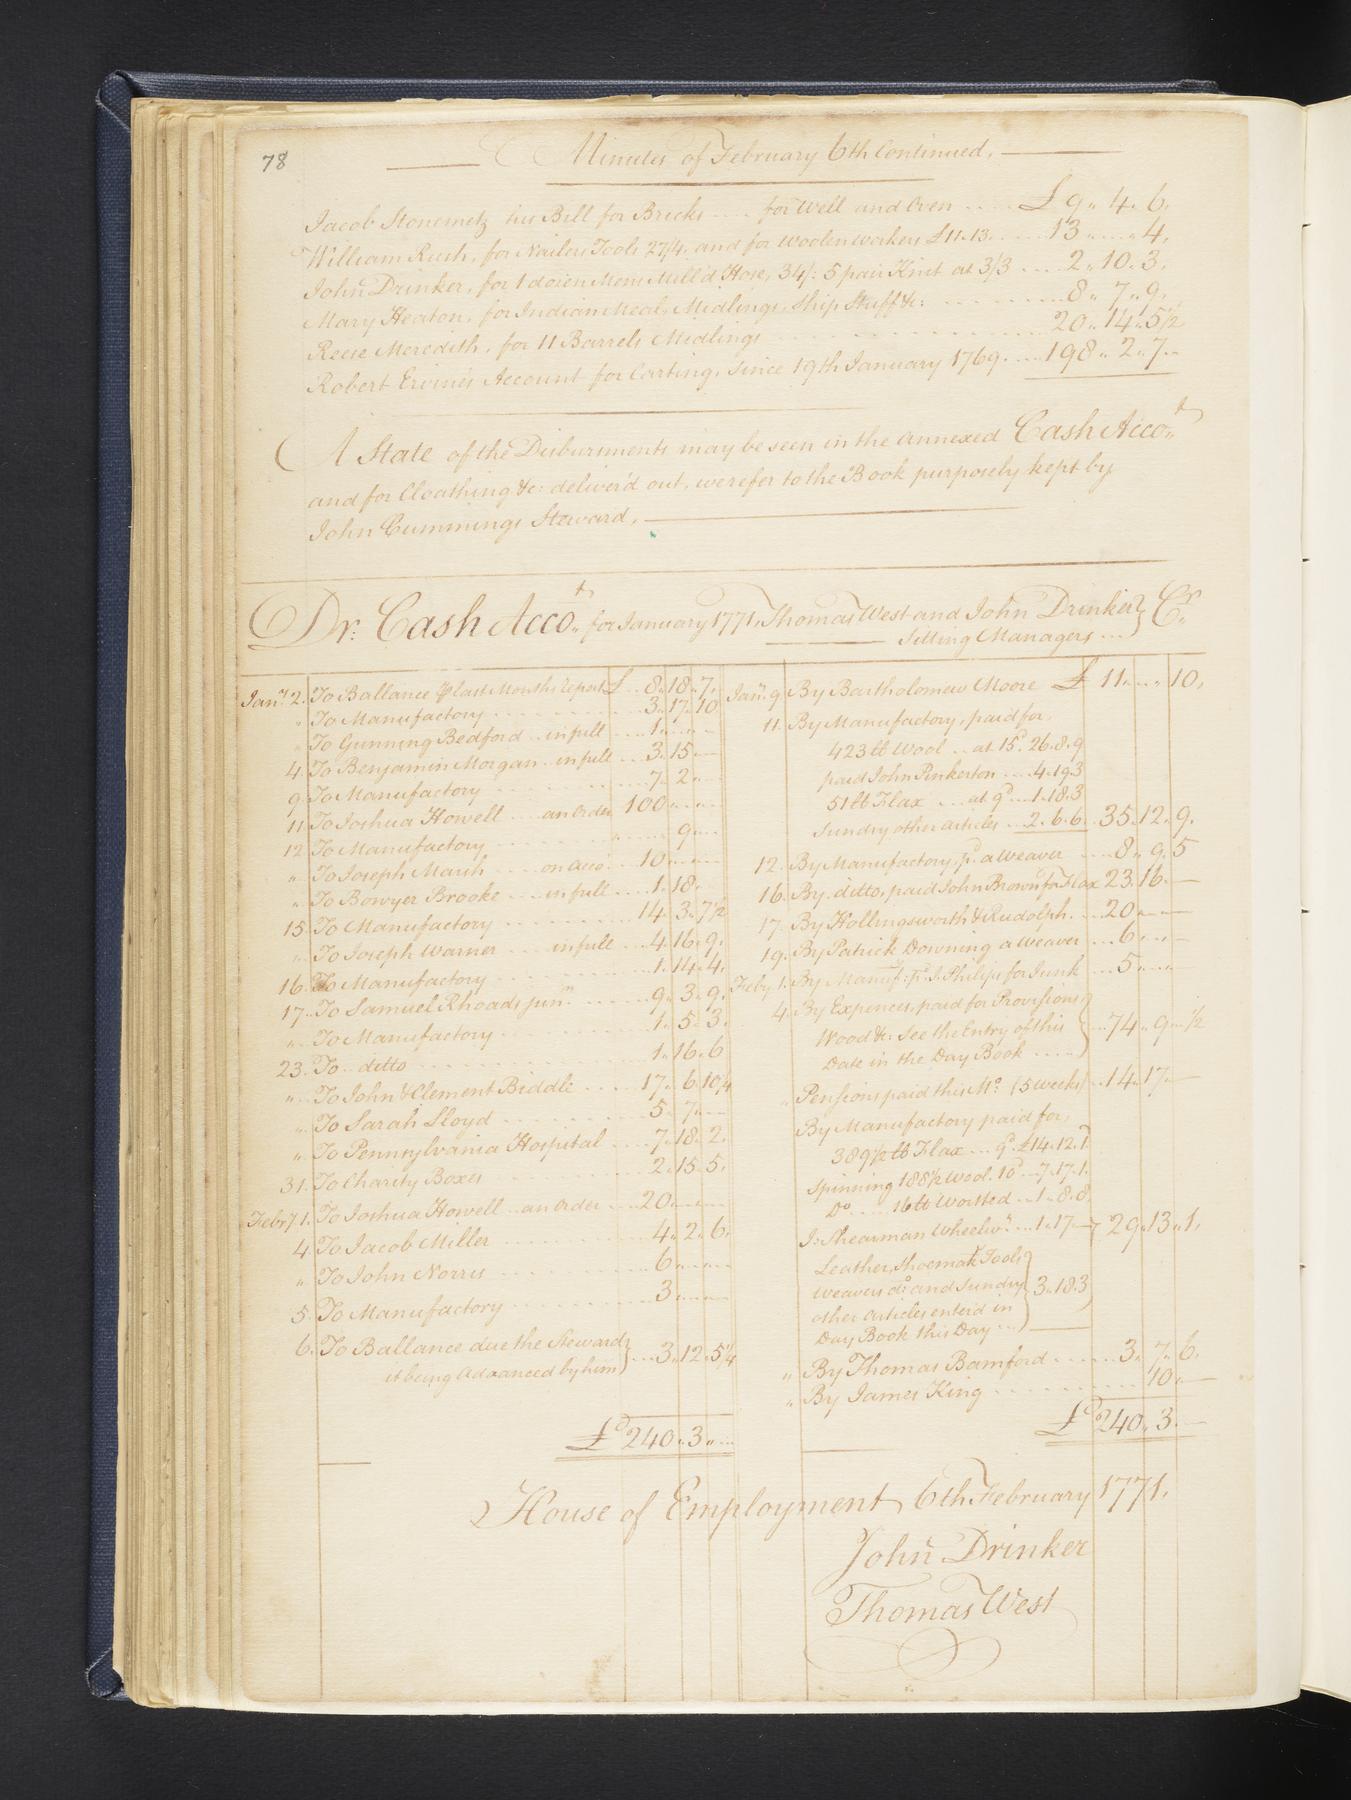 78
Minutes of February 6th Continued,
Jacob Stonemetz his Bill for Bricks .... for Well and Oven ..... £ 9,, 4,, 6,
William Rush, for Nailers Tools 27/4. and for Woolen workers £11.13. ..... 13 ..... 4,
John Drinker, for 1 dozen Mens Mill'd Hose, 34/: 5 pair Knit at 3/3 .... 2,, 10,, 3,
Mary Heaton, for Indian Meal, Midlings, Ship Stuff &c: ......... 8,, 7,, 9,
Reese Meredith, for 11 Barrels Midlings ............ 20,, 14,, 5½
Robert Ervines Account for Carting, Since 19th January 1769. .... 198,, 2,, 7..
A State of the Disbursments may be seen in the annexed Cash Acco,,t
and for Cloathing &c: deliver'd out, we refer to the Book purposely kept by
John Cummings Steward,
Dr: Cash Acco,,t for January 1771, Thomas West and John Drinker } Cr
Sitting Managers ...
Jany 2. To Ballance ⅌ last Months report £ .. 8,, 18,, 7,
,, To Manufactory .......... 3,, 17,, 10
,, To Gunning Bedford .. in full .... 1,, .. ..
4. To Benjamin Morgan .. in full ... 3,, 15 —
9 To Manufactory .......... 7,, 2 ..
11 To Joshua Howell .... an Order 100 .. .. ..
12. To Manufactory .......... ,, 9 ..
,, To Joseph Marsh .... on Acco .. 10 .. ..
,, To Bowyer Brooke .... in full ... 1,, 18,
15. To Manufactory .......... 14,, 3,, 7½
,, To Joseph Warner .... in full ... 4,, 16,, 9,
16. To Manufactory .......... 1,, 14,, 4,
17.. To Samuel Rhoads junr ...... 9,, 3,, 9,
,, To Manufactory .......... 1,, 5,, 3,
23. To .. ditto .......... 1,, 16,, 6
,, To John & Clement Biddle ..... 17,, 6,, 10¼
,, To Sarah Lloyd .......... 5,, 7,, ..
,, To Pennsylvania Hospital .... 7,, 18,, 2,
31. To Charity Boxes .......... 2,, 15,, 5,
Febry 1. To Joshua Howell .. an Order ... 20 .. ..
4. To Jacob Miller .......... 4,, 2,, 6,
,, To John Norris .......... 6 .. ..
5. To Manufactory .......... 3 .. ..
6. To Ballance due the Steward }
it being Advanced by him } .... 3,, 12,, 5¼
£ 240,, 3,, ...
Jany 9 By Bartholomew Moore £ 11,, .. 10,
11. By Manufactory, paid for,
423 lb Wool .. at 15d. 26.8.9
paid John Pinkerton .... 4.19.3
51 lb Flax .... at 9d .... 1.18.3
Sundry other articles ... 2.6.6. .. 35,, 12,, 9,
12. By Manufactory, pd. a Weaver .... 8,, 9,, 5
16. By ditto, paid John Brown for Flax 23,, 16 —
17. By Hollingsworth & Rudolph. ... 20 — —
19. By Patrick Downing a Weaver ... 6 .. —
Febry 1. By Manuf: pd. J. Philips for Junk ... 5 .. —
4. By Expences, paid for Provisions }
Wood &c: See the Entry of this } .... 74,, 9,, ½
Date in the Day Book ..... }
,, Pensions paid this Mo: (5 weeks) .. 14,, 17 —
By Manufactory paid for,
389½ lb Flax ... 9d. £14.12.1
Spinning 188½ Wool. 10d ... 7.17.1.
Do ..... 16 lb Worsted ... 1.. 8.8
J: Shearman Wheelwr ... 1.17 — } 29,, 13,, 1,
Leather, Shoemakr Tools }
Weavers do: and Sundry } 3.18.3
other articles enter'd in }
Day Book this Day ... }
,, By Thomas Bamford ...... 3,, 7,, 6,
,, By James King .......... 10,, —
£ 240,, 3,, —
House of Employment, 6th February 1771,
John Drinker
Thomas West